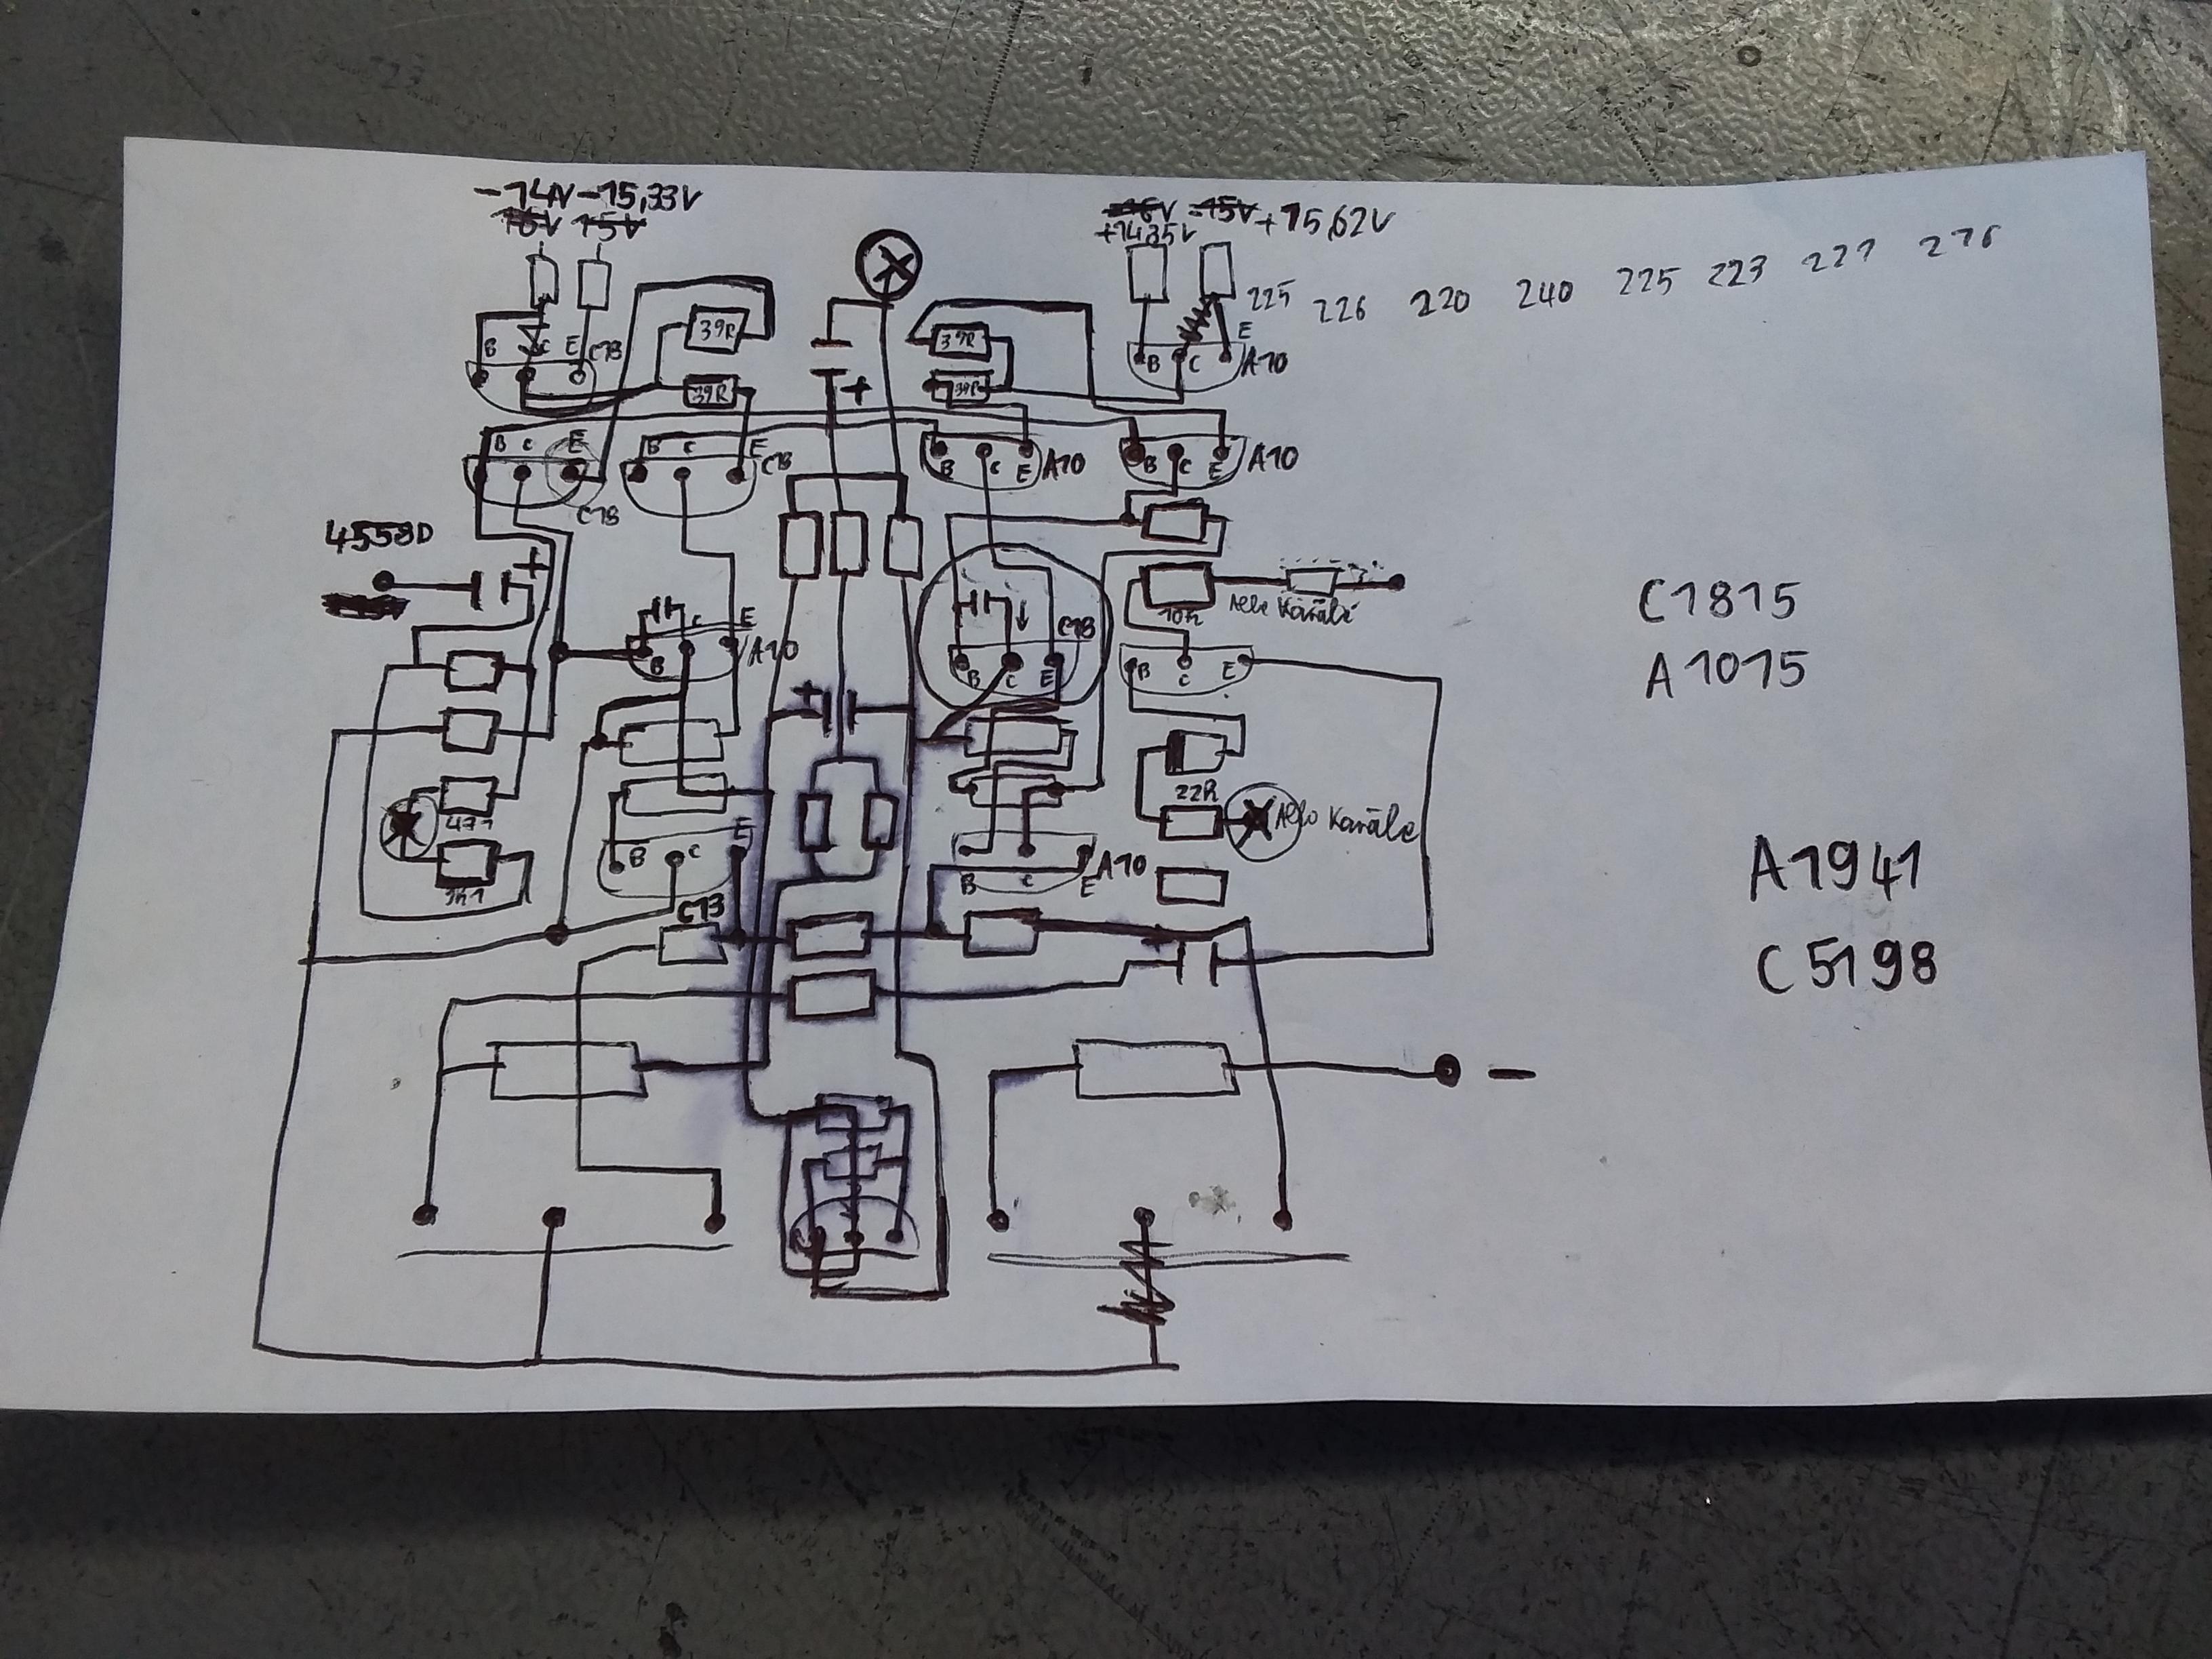 -14V -15,33V
16V 15V
16V -15V +15,62V
+14,35V
225 226 220 240 225 223 221 216
39R
39R
B C E C18
39R
39R
+
E
B C A10
B C E
C18
B C E C18
B C E A10
B C E A10
4558D
+
10k
Alle Kanäle
C1815
A1015
C E
B A10
C18
B C E
B C E
+
22R
Alle Kanäle
471
1k1
B C E
C18
A10
B C E
A1941
C5198
+
-